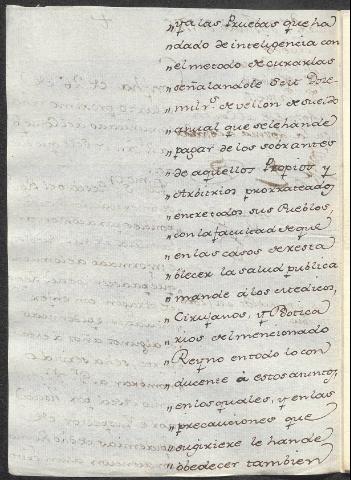 " va las Pruebas que ha
" dado de inteligencia con
" el metodo de curarlas
" señalandole Seis Doze
" mil r.s de vellon de sueldo
" anual que se le han de
" pagar de los sobrantes
" de aquellos Propios y
" Arbitrios prorrateados
" entre todos sus Pueblos,
" con la facultad de que
" en las casos de resta
" blecer la salud publica
" mande á los Medicos,
" Cirujanos, y Botica
" rios del mencionado
" Reyno en todo lo con
" ducente á estos asuntos,
" en los quales, y en las
" precauciones que
" sugiriere le han de
" obedecer tambien